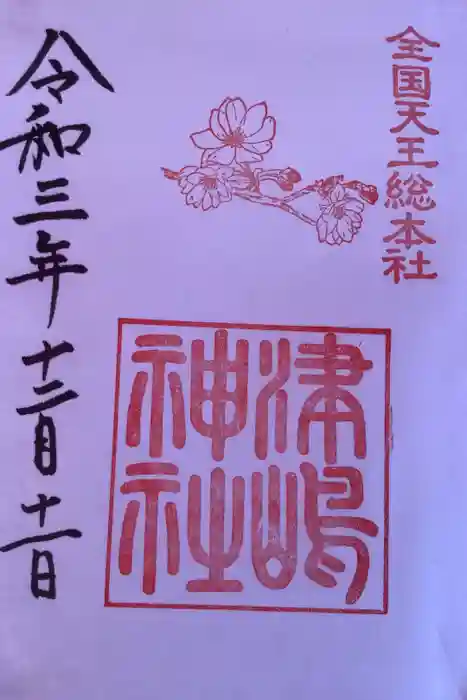 全国天王総本社
津嶋
神社
令和三年十二月十一日